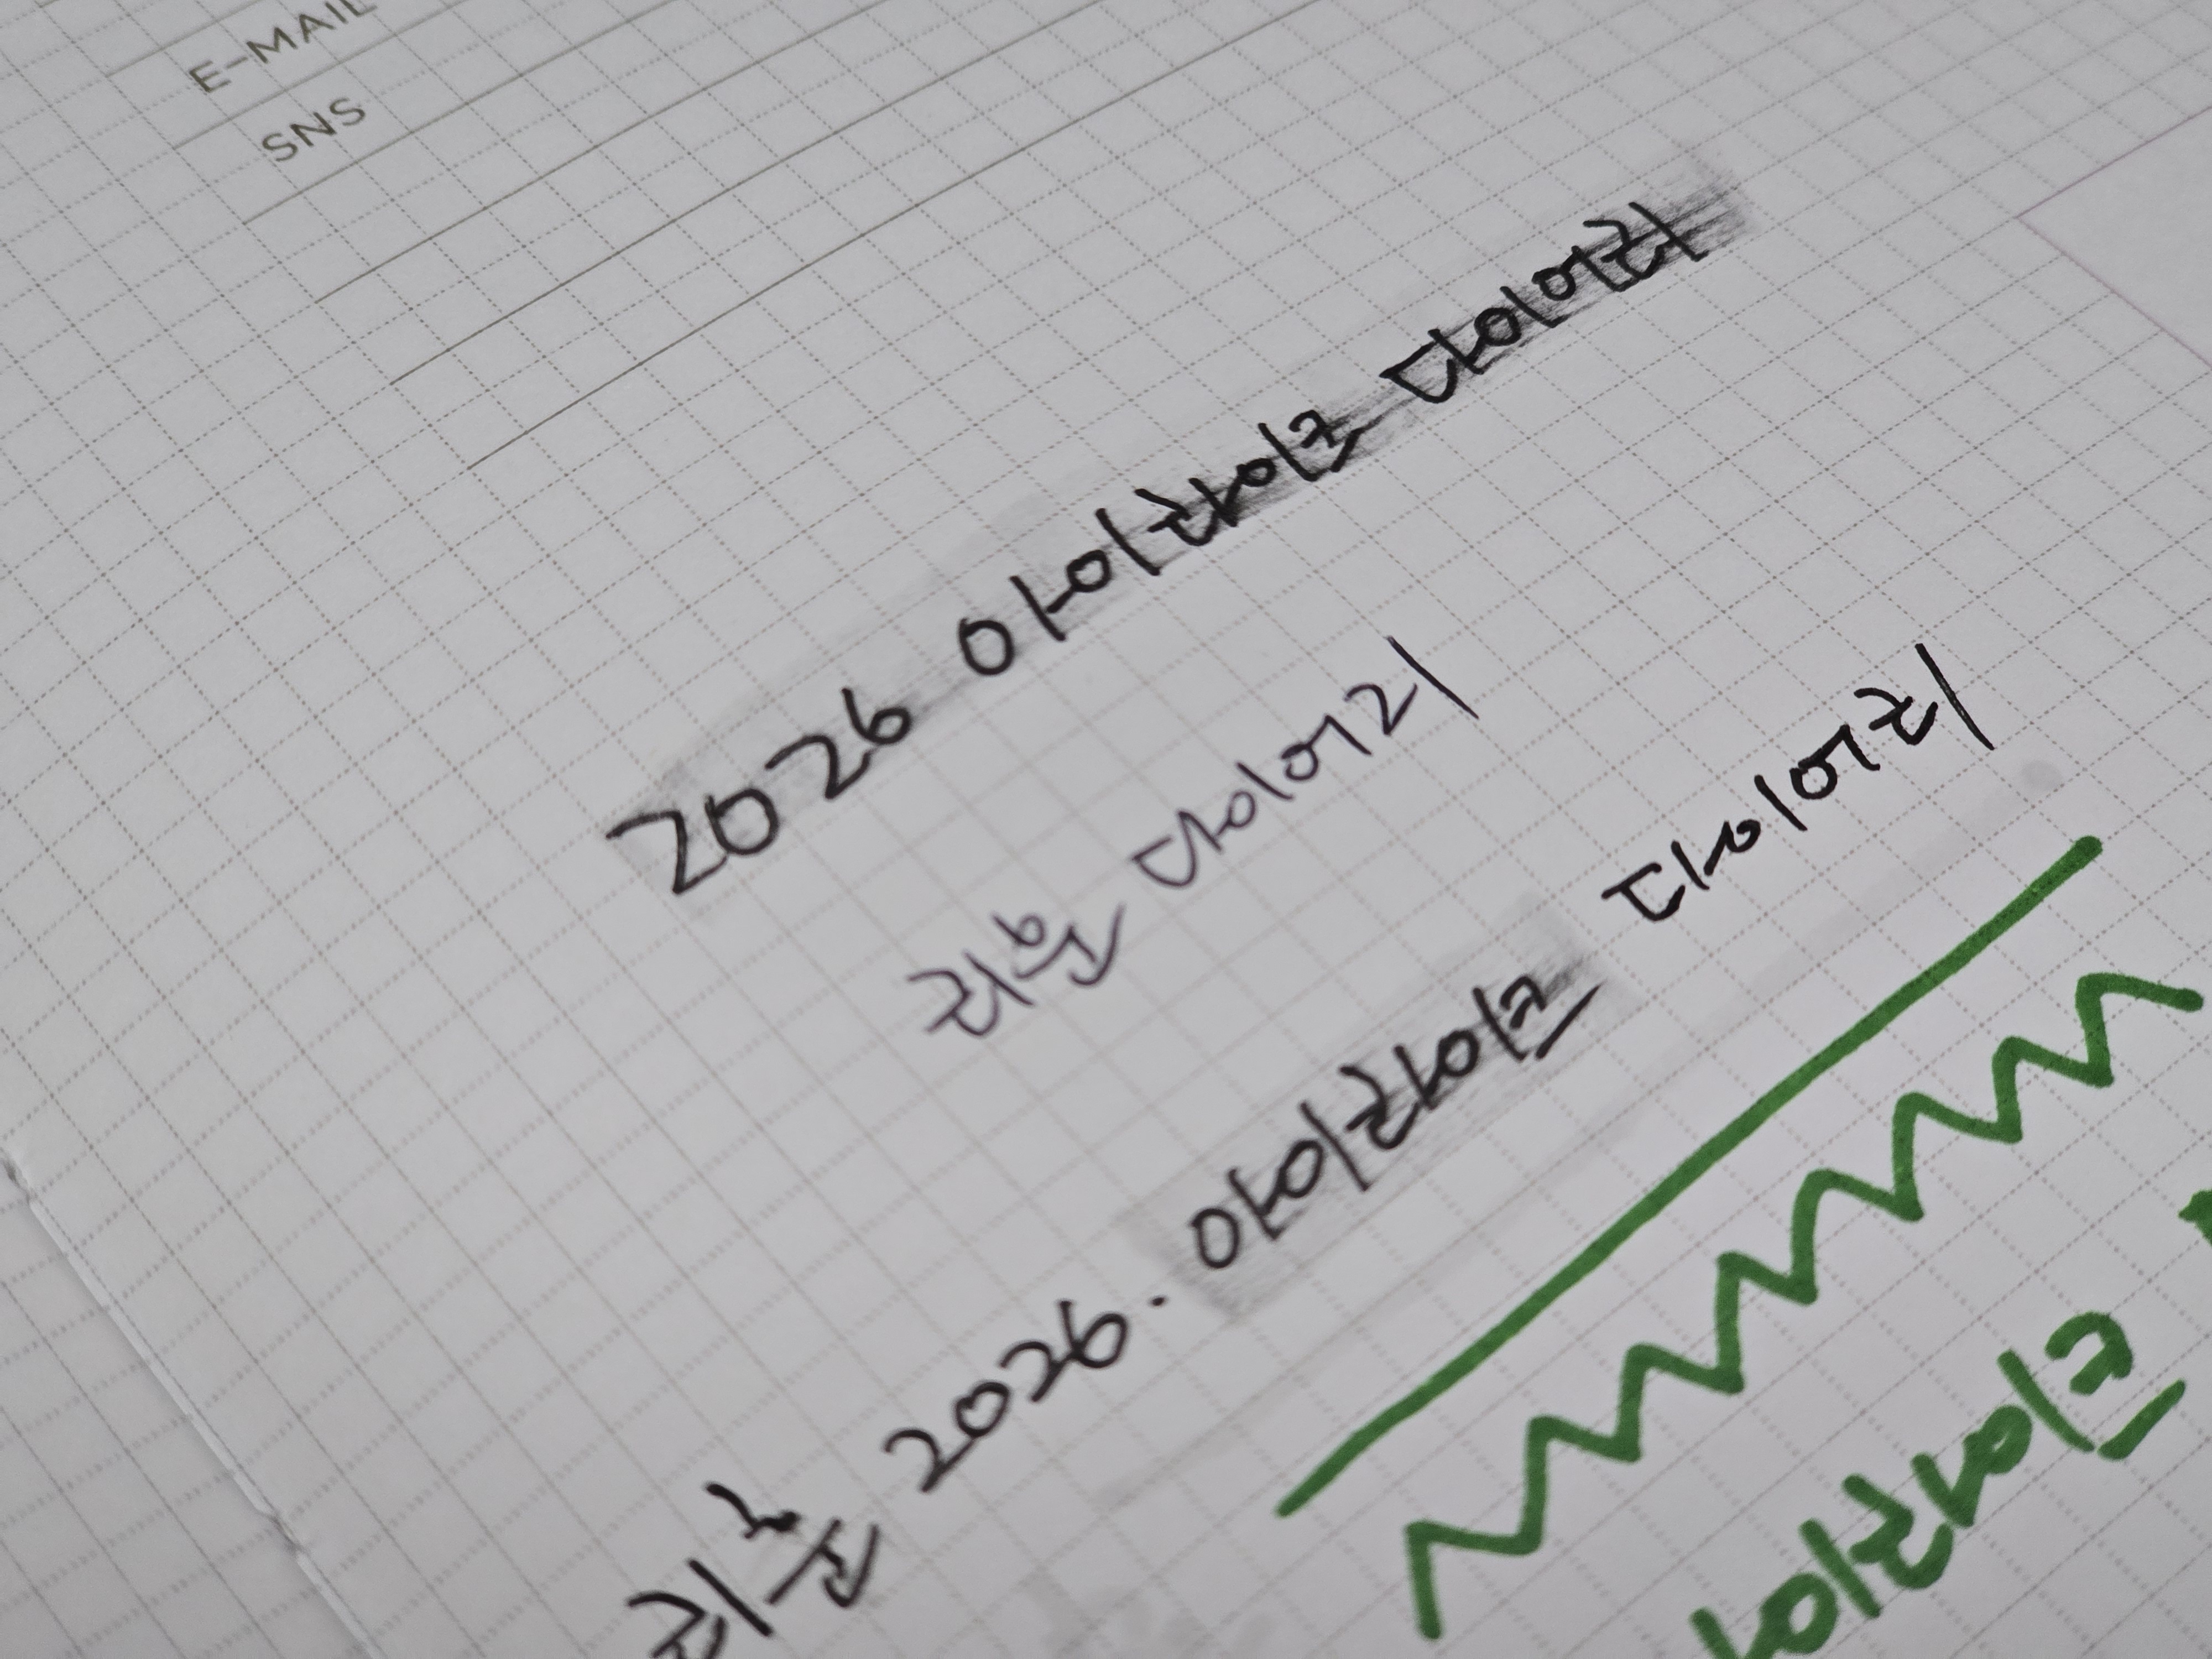 E-MAIL
SNS
2026 아이라이크 다이어리
리훈 다이어리
리훈 2026. 아이라이크 다이어리
아이라이크